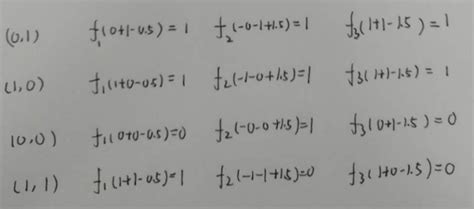 (0,1) f₁(0+1-0.5)=1 f₂(-0-1+1.5)=1 f₃(1+1-1.5)=1
(1,0) f₁(1+0-0.5)=1 f₂(-1-0+1.5)=1 f₃(1+1-1.5)=1
(0,0) f₁(0+0-0.5)=0 f₂(-0-0+1.5)=1 f₃(0+1-1.5)=0
(1,1) f₁(1+1-0.5)=1 f₂(-1-1+1.5)=0 f₃(1+0-1.5)=0